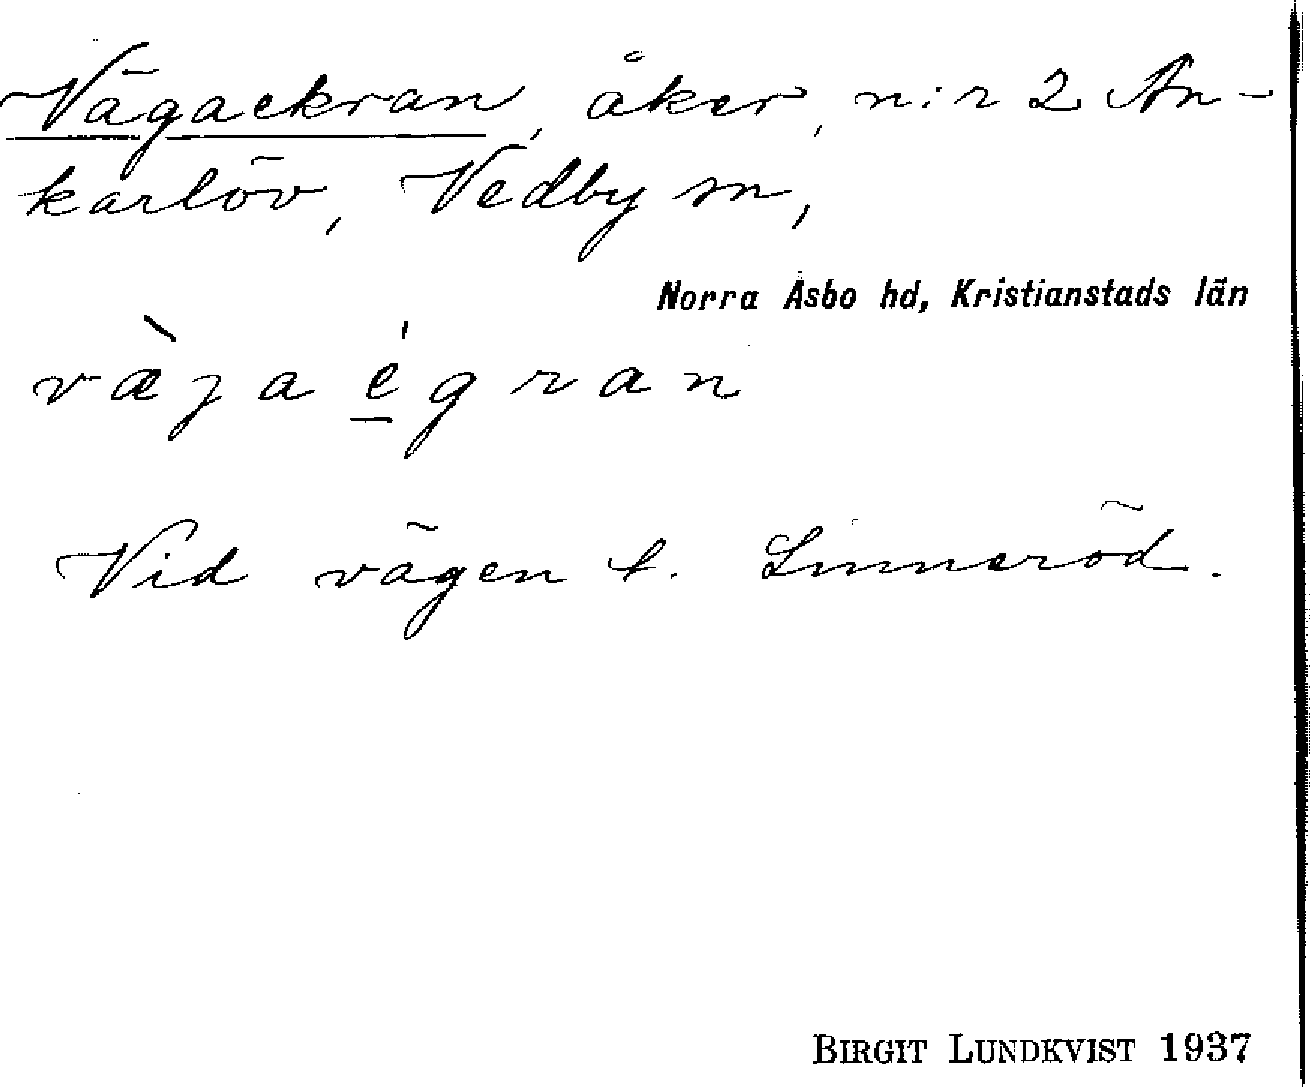 Vägaekran, åker, n:r 2 An-
karlöv, Vedby sn,
Norra Åsbo hd, Kristianstads län
væ̀ja é̱gran
Vid vägen t. Linneröd.
BIRGIT LUNDKVIST 1937